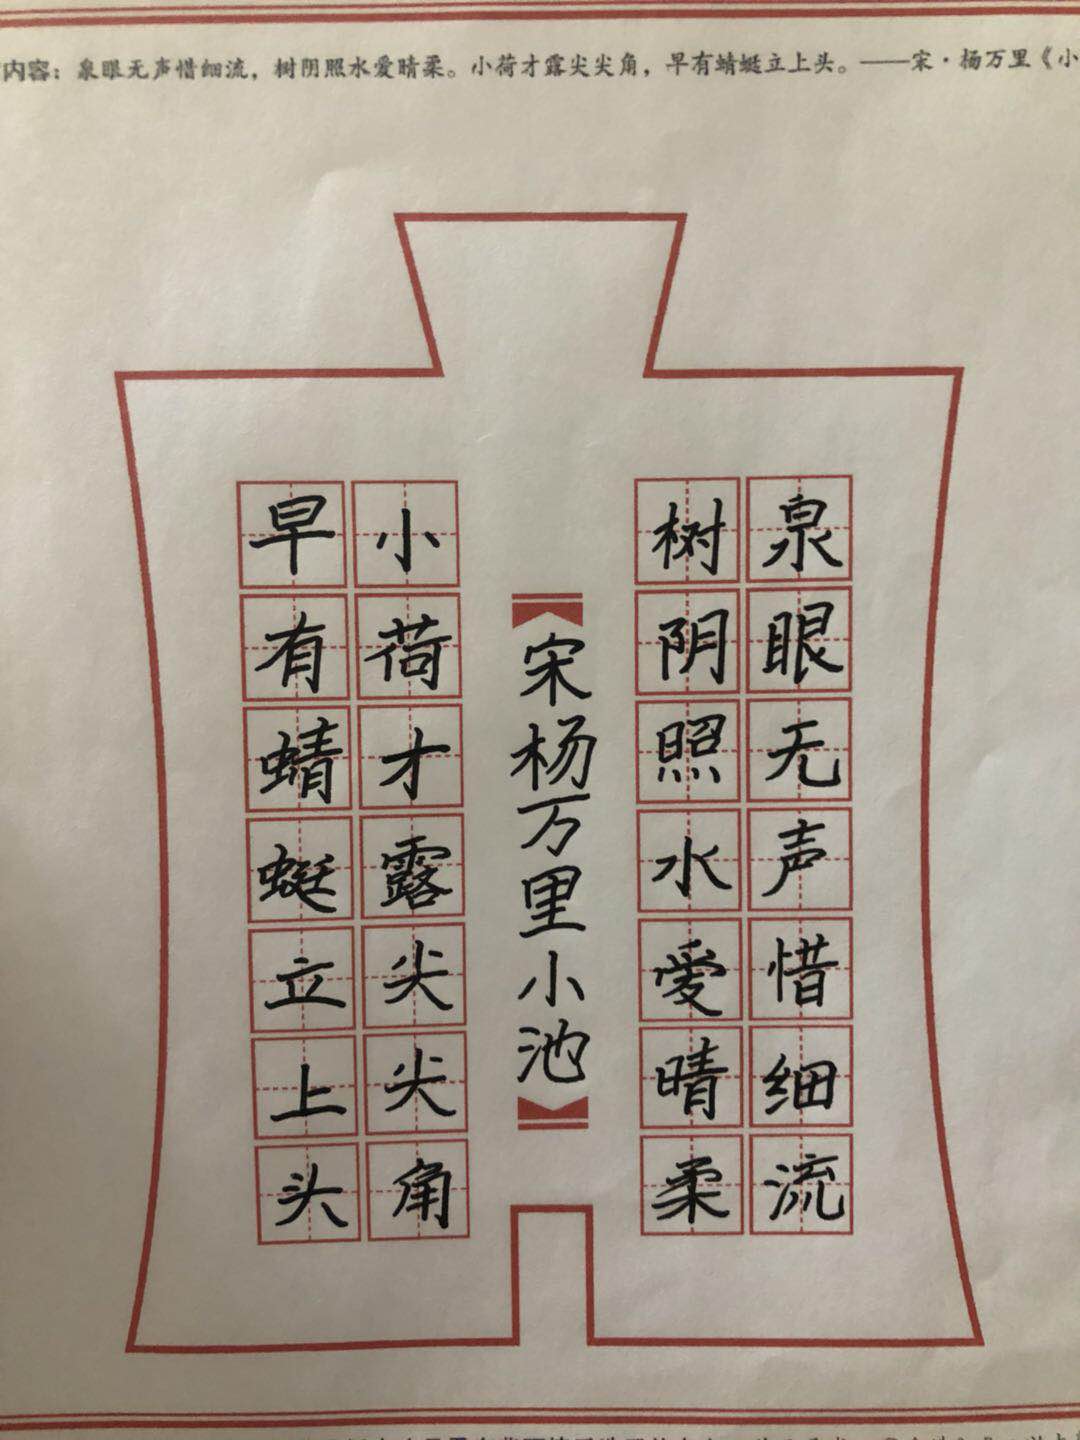 内容：泉眼无声惜细流，树阴照水爱晴柔。小荷才露尖尖角，早有蜻蜓立上头。——宋·杨万里《小
泉眼无声惜细流
树阴照水爱晴柔
【宋杨万里小池】
小荷才露尖尖角
早有蜻蜓立上头